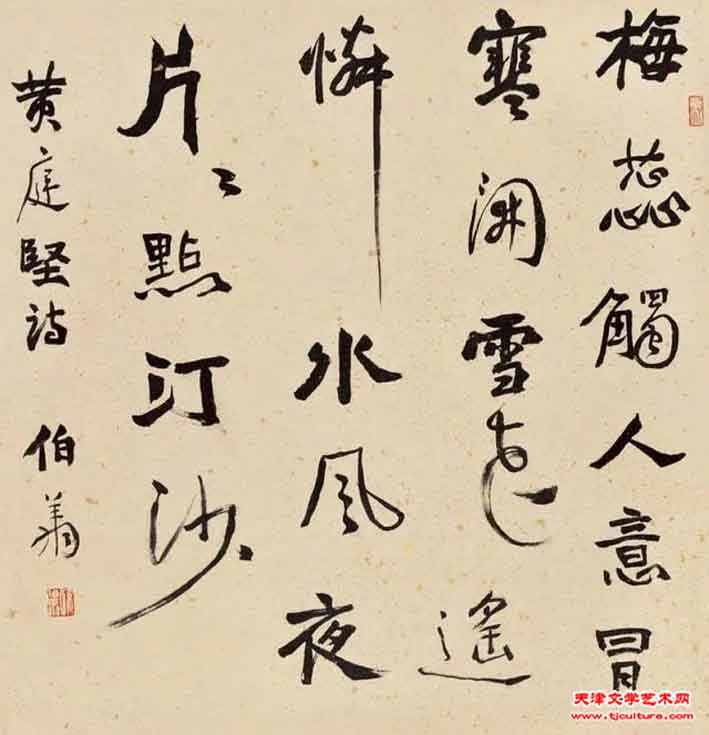 梅蕊觸人意冒
寒開雪花遙
憐水風夜
片〻點汀沙
黄庭堅詩 伯翁
天津文学艺术网
www.tjculture.com